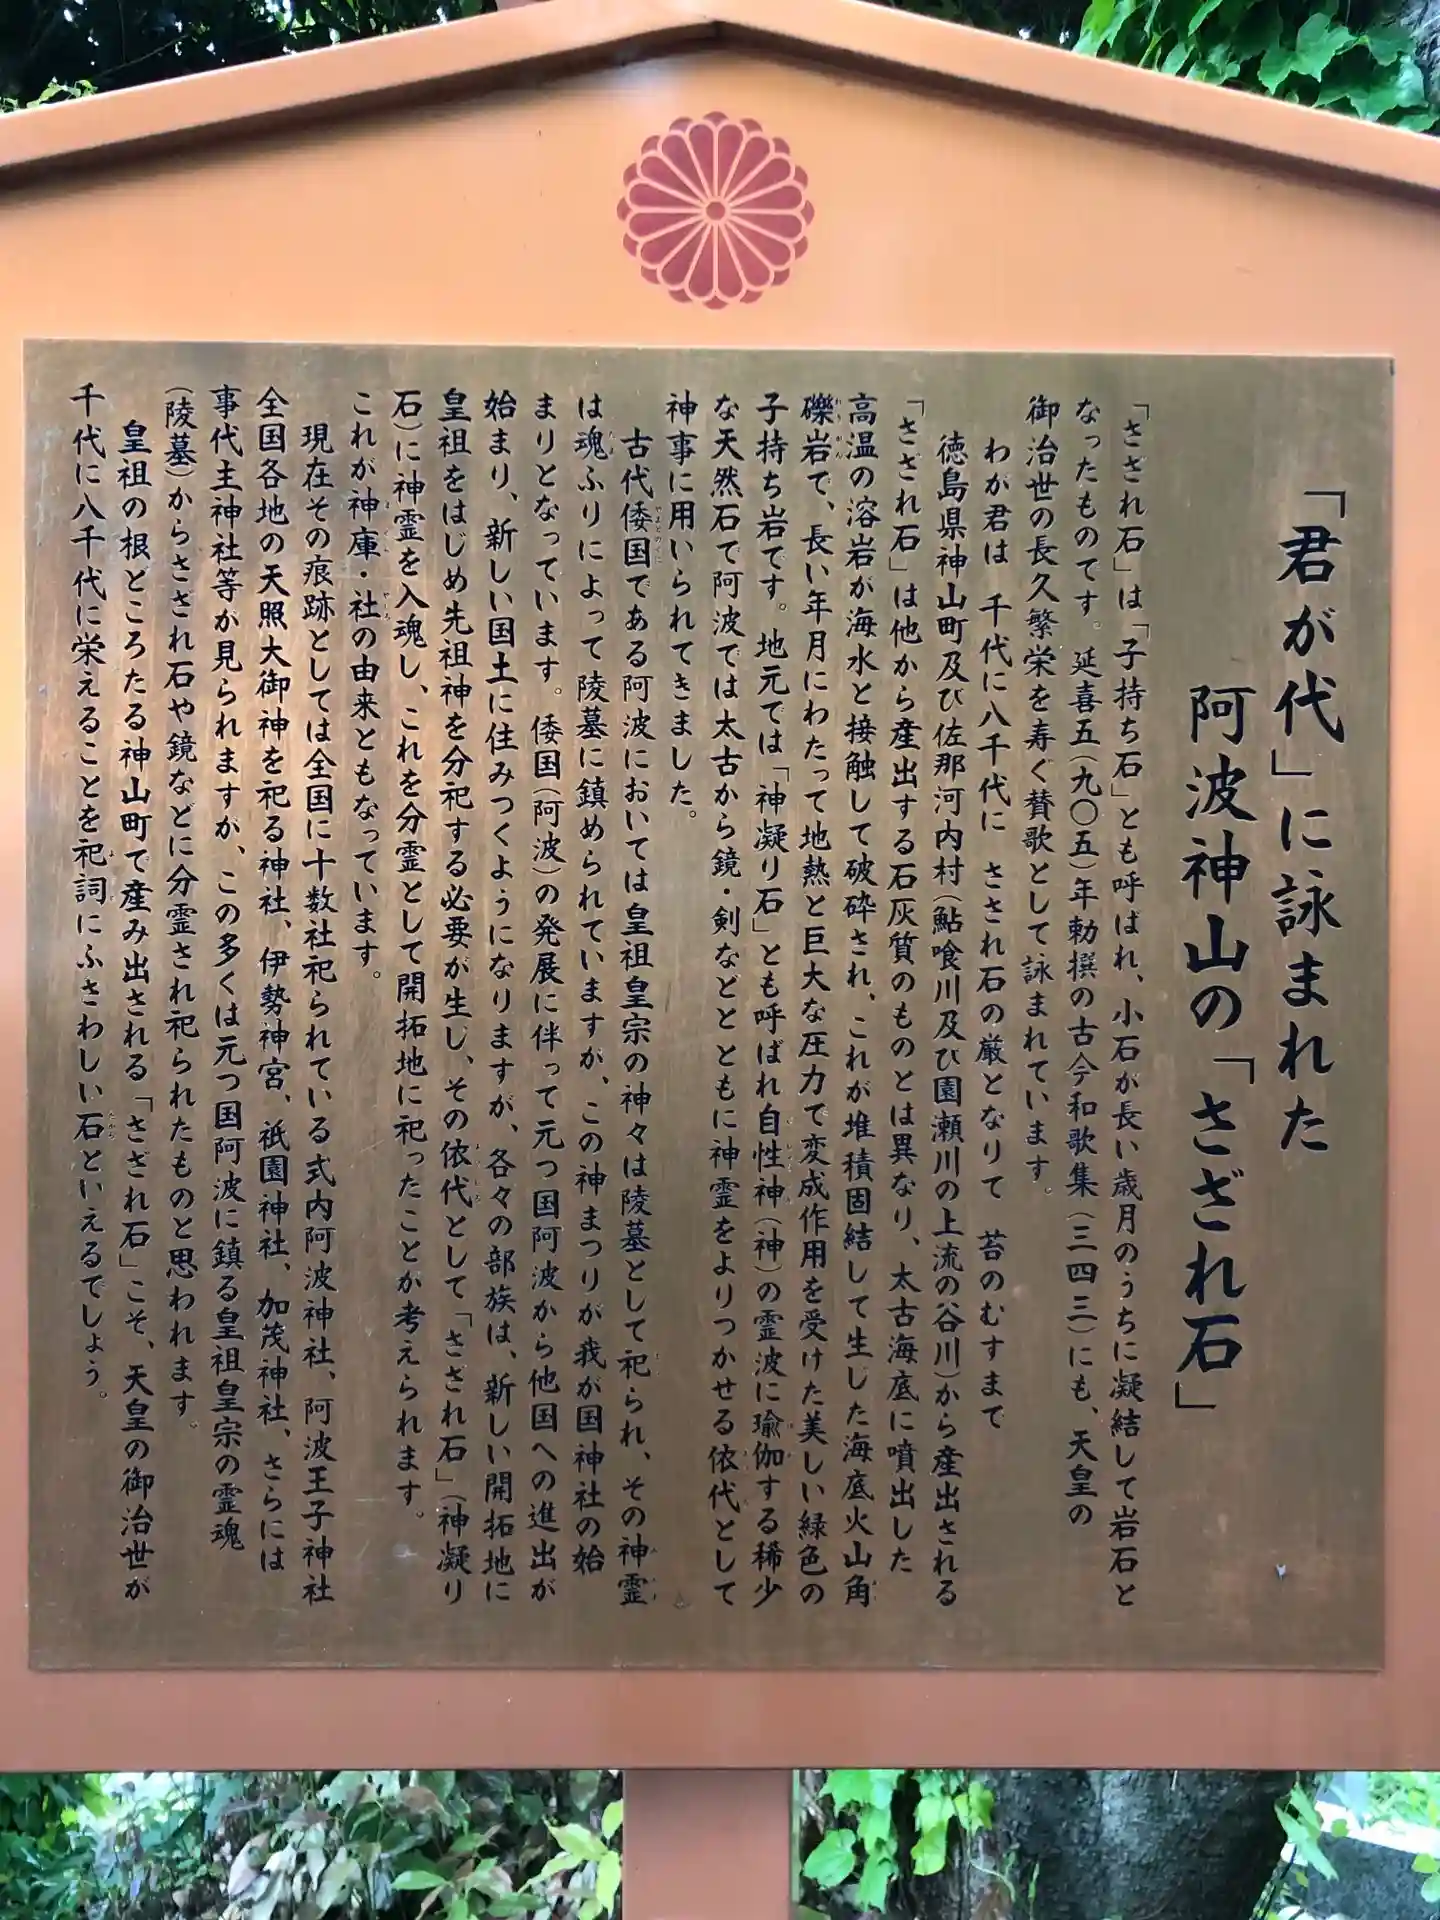 「君が代」に詠まれた
阿波神山の「さざれ石」
「さざれ石」は「子持ち石」とも呼ばれ、小石が長い歳月のうちに凝結して岩石と
なったものです。延喜五(九〇五)年勅撰の古今和歌集(三四三)にも、天皇の
御治世の長久繁栄を寿ぐ賛歌として詠まれています。
わが君は 千代に八千代に さざれ石の巌となりて 苔のむすまで
徳島県神山町及び佐那河内村(鮎喰川及び園瀬川の上流の谷川)から産出される
「さざれ石」は他から産出する石灰質のものとは異なり、太古海底に噴出した
高温の溶岩が海水と接触して破砕され、これが堆積固結して生した海底火山角
礫岩で、長い年月にわたって地熱と巨大な圧力で変成作用を受けた美しい緑色の
子持ち岩です。地元では「神凝り石」とも呼ばれ自性神(神)の霊波に瑜伽する稀少
な天然石で阿波では太古から鏡・剣などとともに神霊をよりつかせる依代として
神事に用いられてきました。
古代倭国である阿波においては皇祖皇宗の神々は陵墓として祀られ、その神霊
は魂ふりによって陵墓に鎮められていますが、この神まつりが我が国神社の始
まりとなっています。倭国(阿波)の発展に伴って元つ国阿波から他国への進出が
始まり、新しい国土に住みつくようになりますが、各々の部族は、新しい開拓地に
皇祖をはじめ先祖神を分祀する必要が生し、その依代として「さざれ石」(神凝り
石)に神霊を入魂し、これを分霊として開拓地に祀ったことが考えられます。
これが神庫・社の由来ともなっています。
現在その痕跡としては全国に十数社祀られている式内阿波神社、阿波王子神社
全国各地の天照大御神を祀る神社、伊勢神宮、祇園神社、加茂神社、さらには
事代主神社等が見られますが、この多くは元つ国阿波に鎮る皇祖皇宗の霊魂
(陵墓)からさざれ石や鏡などに分霊され祀られたものと思われます。
皇祖の根ところたる神山町で産み出される「さざれ石」こそ、天皇の御治世が
千代に八千代に栄えることを祀詞にふさわしい石といえるでしょう。